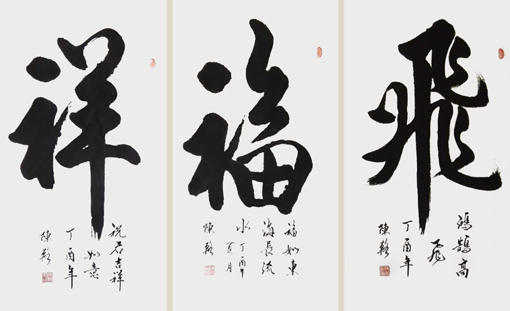 飛
鴻鵠高
飛
丁酉年
陳
福
福如東
海長流
水丁酉年
夏月
陳
祥
祝君吉祥
如意
丁酉年
陳